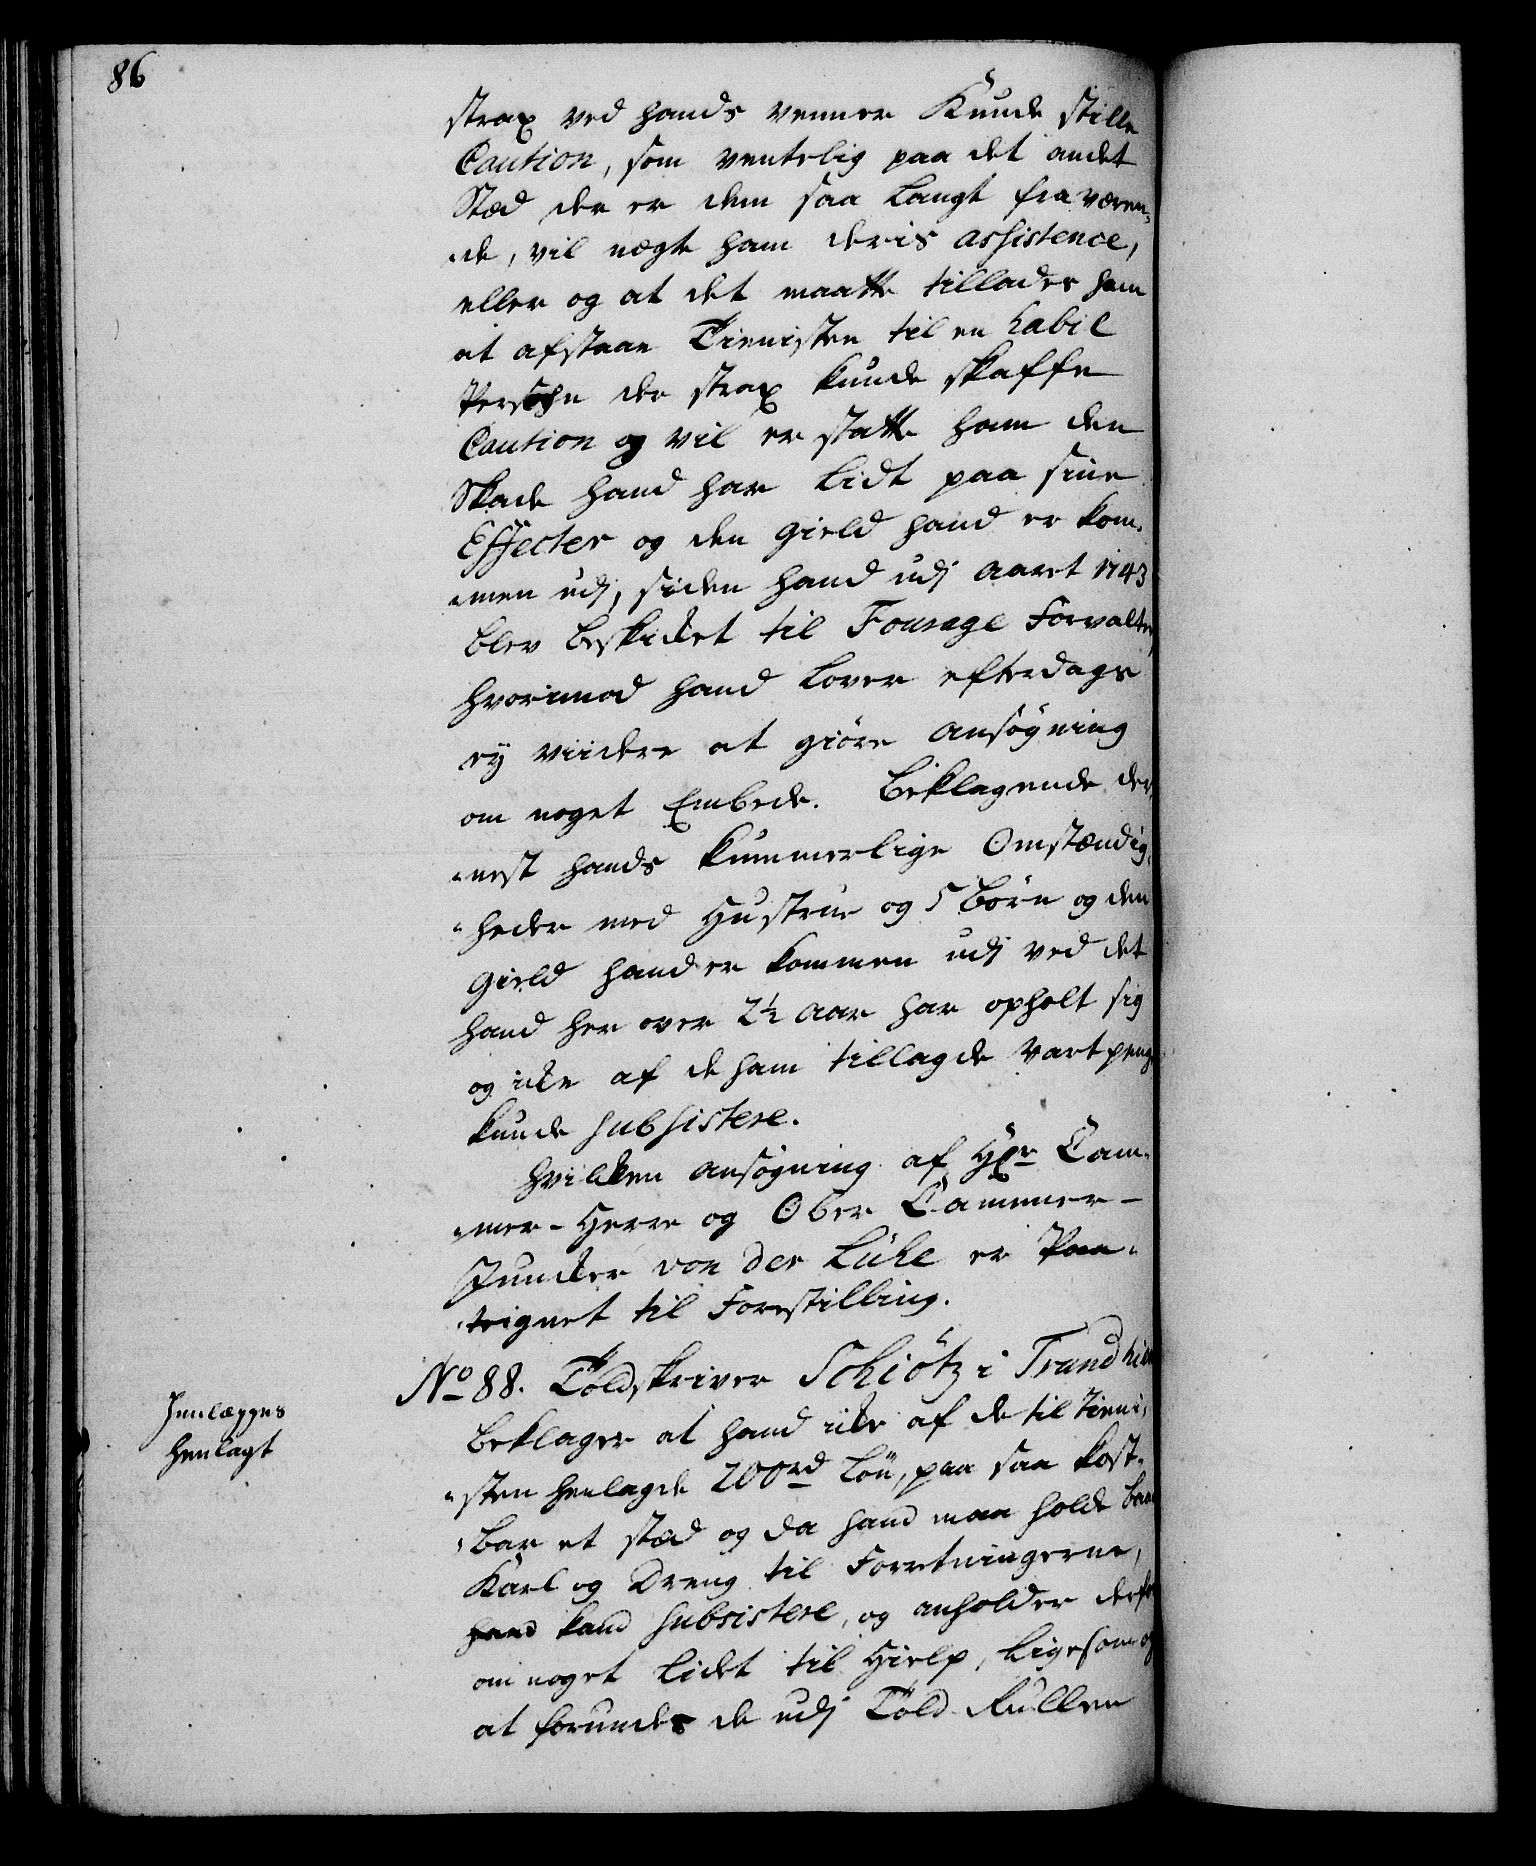 86
strax ved hands venner Kunde stille
Caution, som ventelig paa det andet
Stæd der er dem saa langt fraværen-
de, vil nægte ham deris assistence,
eller og at det maatte tillades ham
at afstaae Tienisten til en habil
Persohn der strax kunde skaffe
Caution og vil erstatte ham den
Skade hand har lidt paa sine
Effecter og den gield hand er kom-
men udj, siden hand udj aaret 1743
blev beskicket til Fourage Forvalter,
hvorimod hand lover efterdags
ey viidere at giöre ansögning
om noget Embede. Beklagende der-
nest hands kummerlige Omstændig-
heder med Hustrue og 5 börn og den
gield hand er kommen udj ved det
hand her over 2½ aar har opholt sig
og icke af de ham tillagde vartpenge
kunde subsistere.
Hvilken ansögning af Hr Cam-
mer-Herre og Ober Cammer-
Juncker von der Lühe er Paa-
teignet til Forestilling.
No 88. Toldskriver Schiötz i Trundhiem
Innlægges
henlagt
beklager at hand icke af de til Tieni-
sten henlagde 200rd lön, paa saa kost-
bar et stæd og da hand maa holde baade
Karl og Dreng til Forretningerne,
hand kand subsistere, og anholder derfor
om noget lidet til Hielp, ligesom og
at forundes de udj Told-Rullen